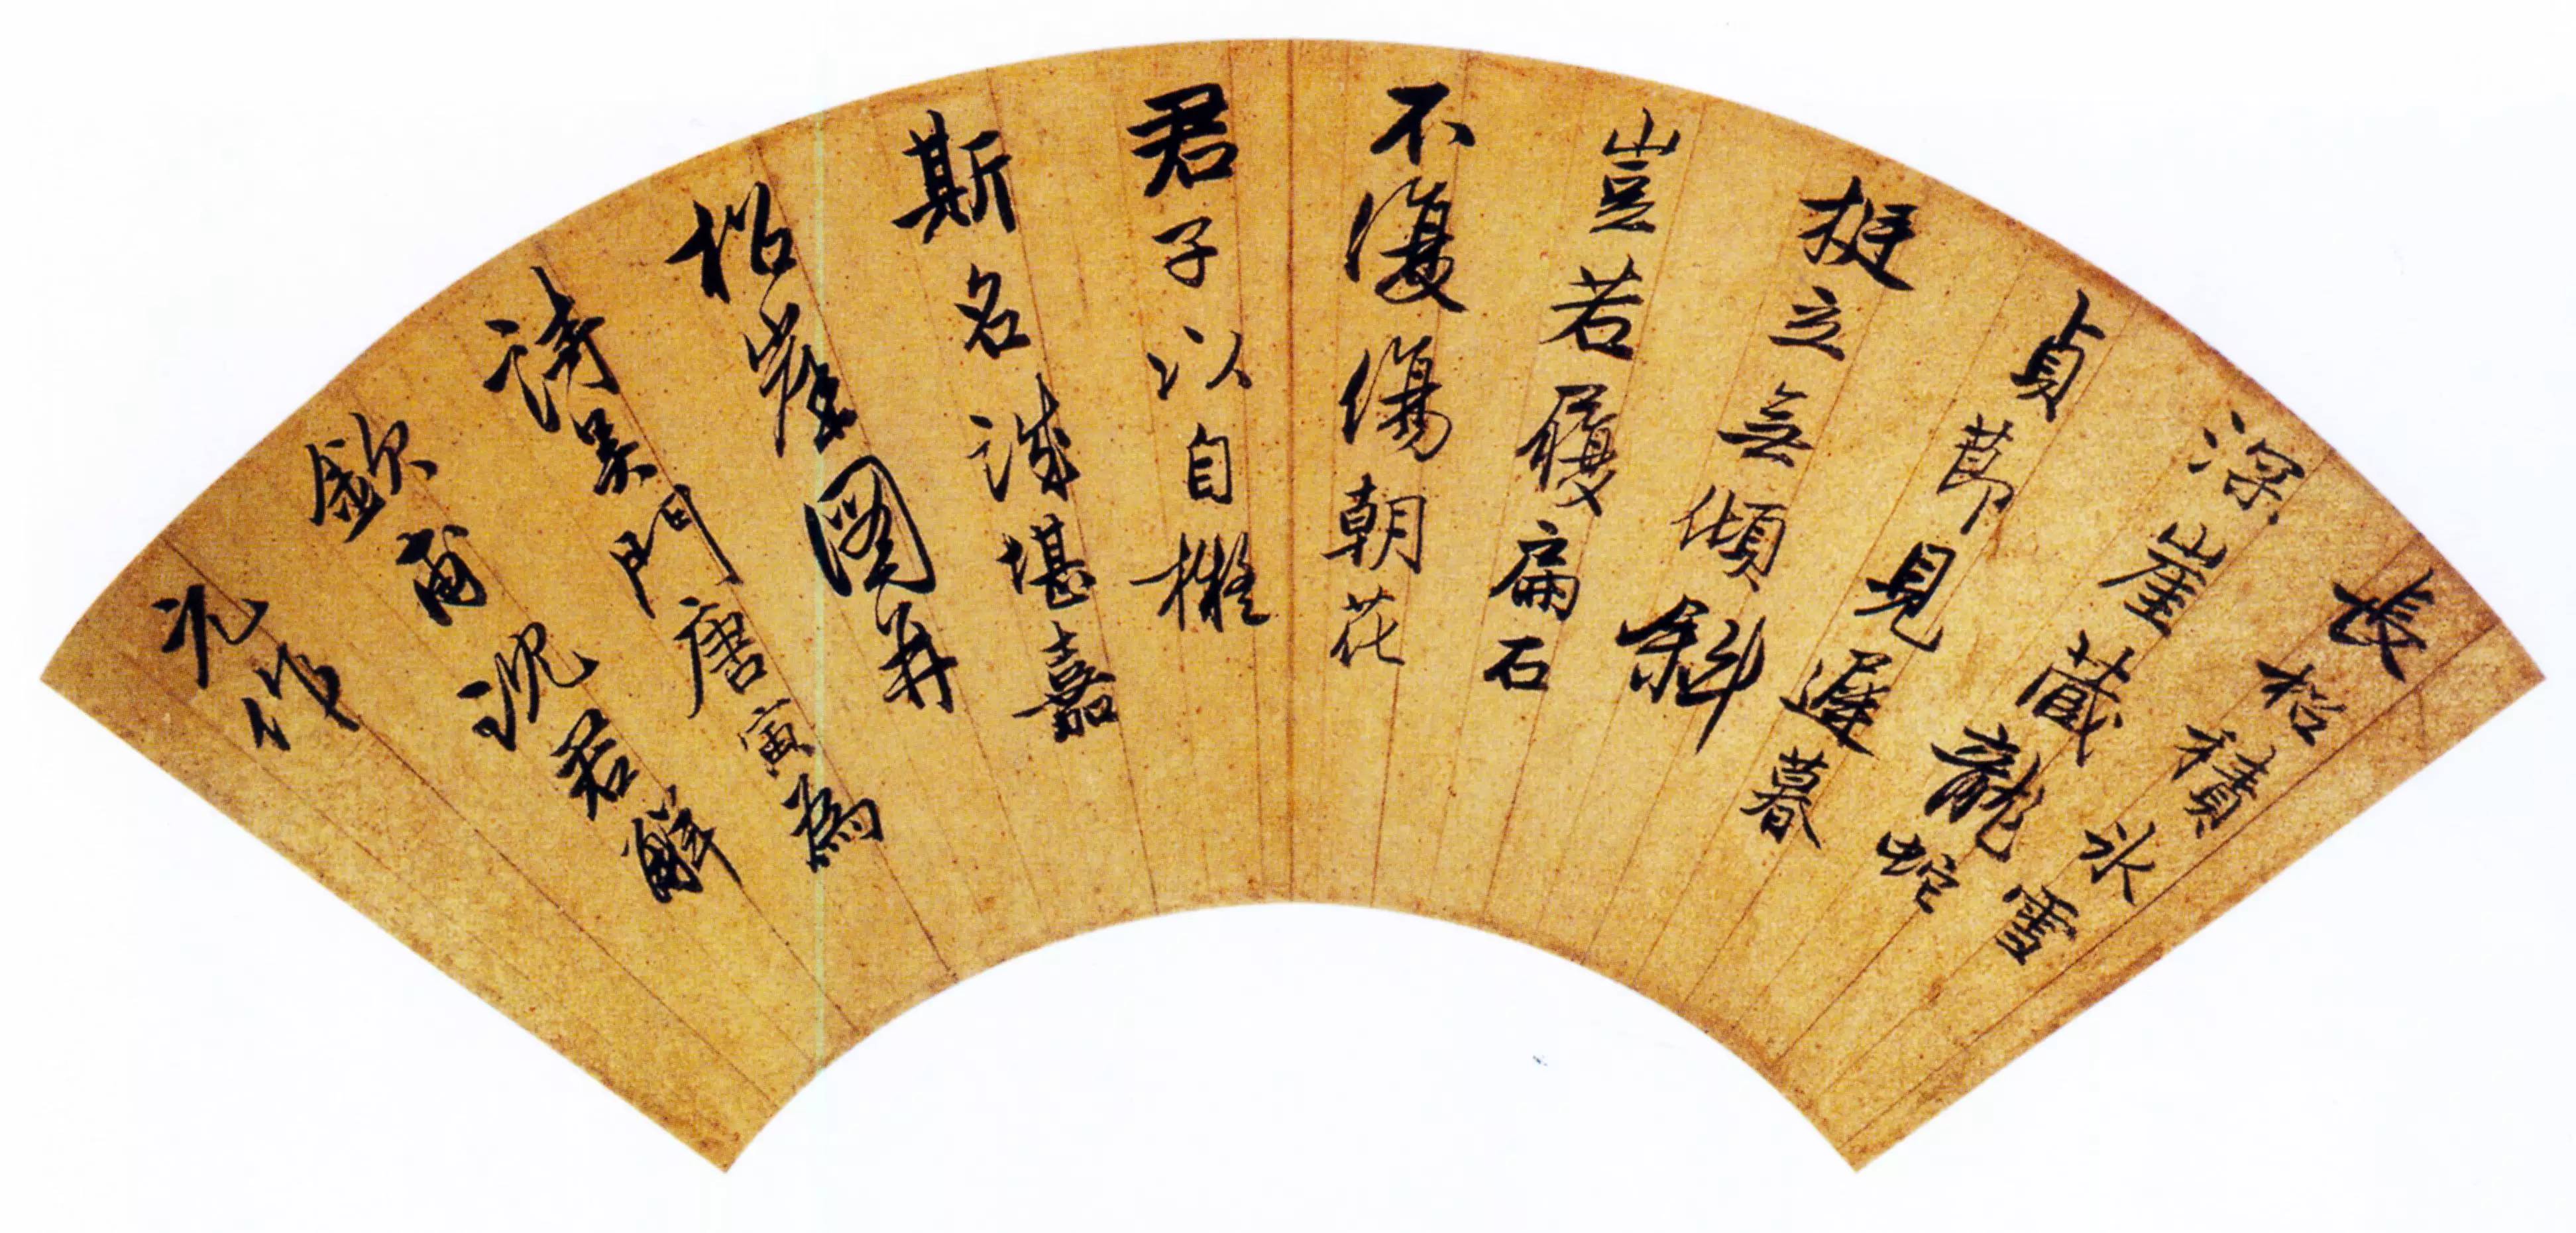 長松積冰雪
深崖藏龍蛇
貞節見遲暮
挺立無傾斜
豈若履扁石
不復傷朝花
君子以自擬
斯名誠堪嘉
松崖圖并
詩吳門唐寅為
欽甫沈君解
元作